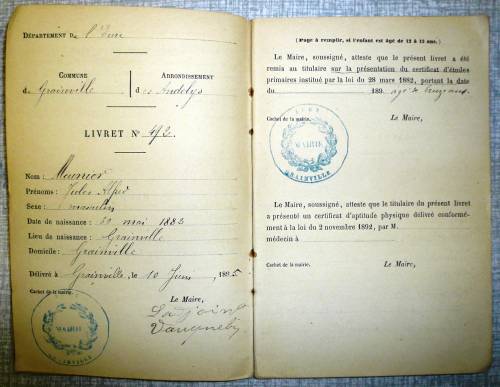 DÉPARTEMENT de l'Eure
COMMUNE
de Grainville
ARRONDISSEMENT
des Andelys
LIVRET No 42
Nom : Meunier
Prénoms : Jules
Sexe : masculin
Date de naissance : mai 1883
Lieu de naissance : Grainville
Domicile : Grainville
Délivré à Grainville, le 10 Juin 1895
Cachet de la mairie.
Le Maire,
MAIRIE
GRAINVILLE
(Page à remplir, si l'enfant est âgé de 12 à 13 ans.)
Le Maire, soussigné, atteste que le présent livret a été
remis au titulaire sur la présentation du certificat d'études
primaires institué par la loi du 28 mars 1882, portant la date
du 189
Cachet de la mairie.
Le Maire,
EURE
MAIRIE
GRAINVILLE
Le Maire, soussigné, atteste que le titulaire du présent livret
a présenté un certificat d'aptitude physique délivré conformé-
ment à la loi du 2 novembre 1892, par M.
médecin à
Cachet de la mairie.
Le Maire,